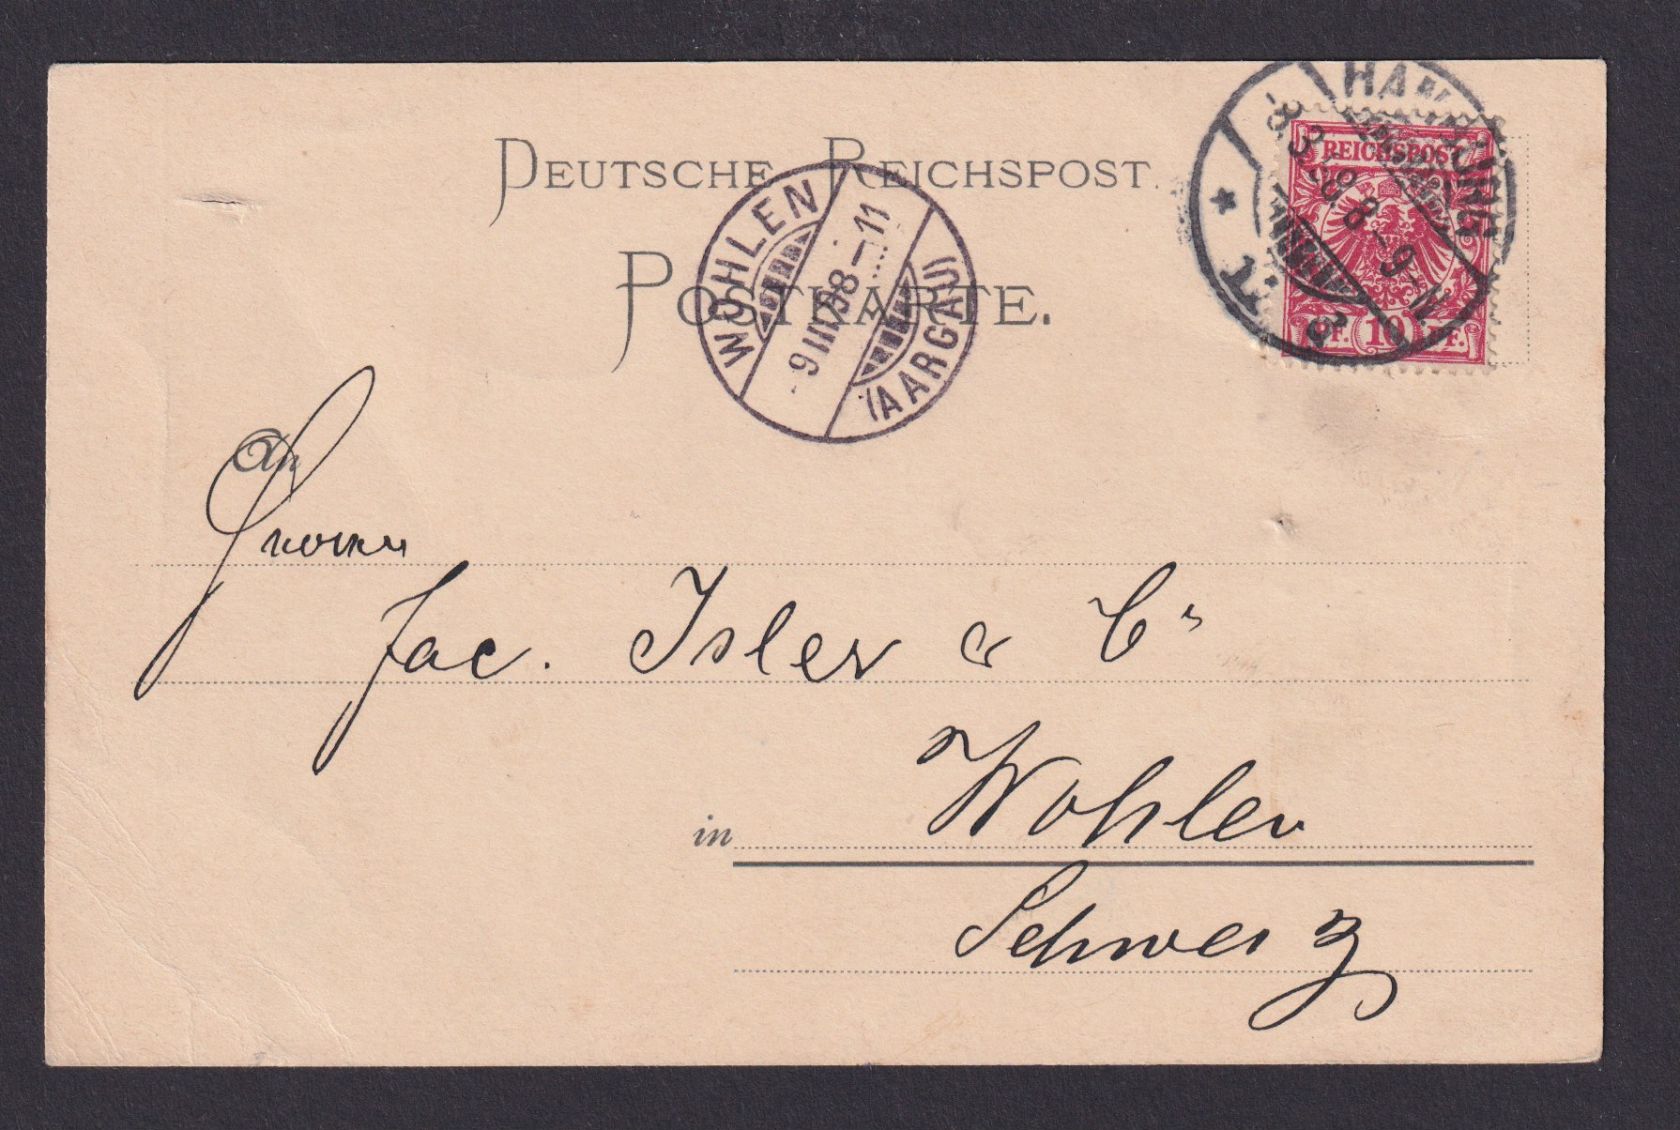 DEUTSCHE REICHSPOST.
POSTKARTE.
WOHLEN
-9 III 98-11
(AARGAU)
HAMBURG
8.3.98.8-9N.
* 1. *
REICHSPOST
PF. 10 PF.
An
Herren
Jac. Isler & Cie
in Wohlen
Schweiz